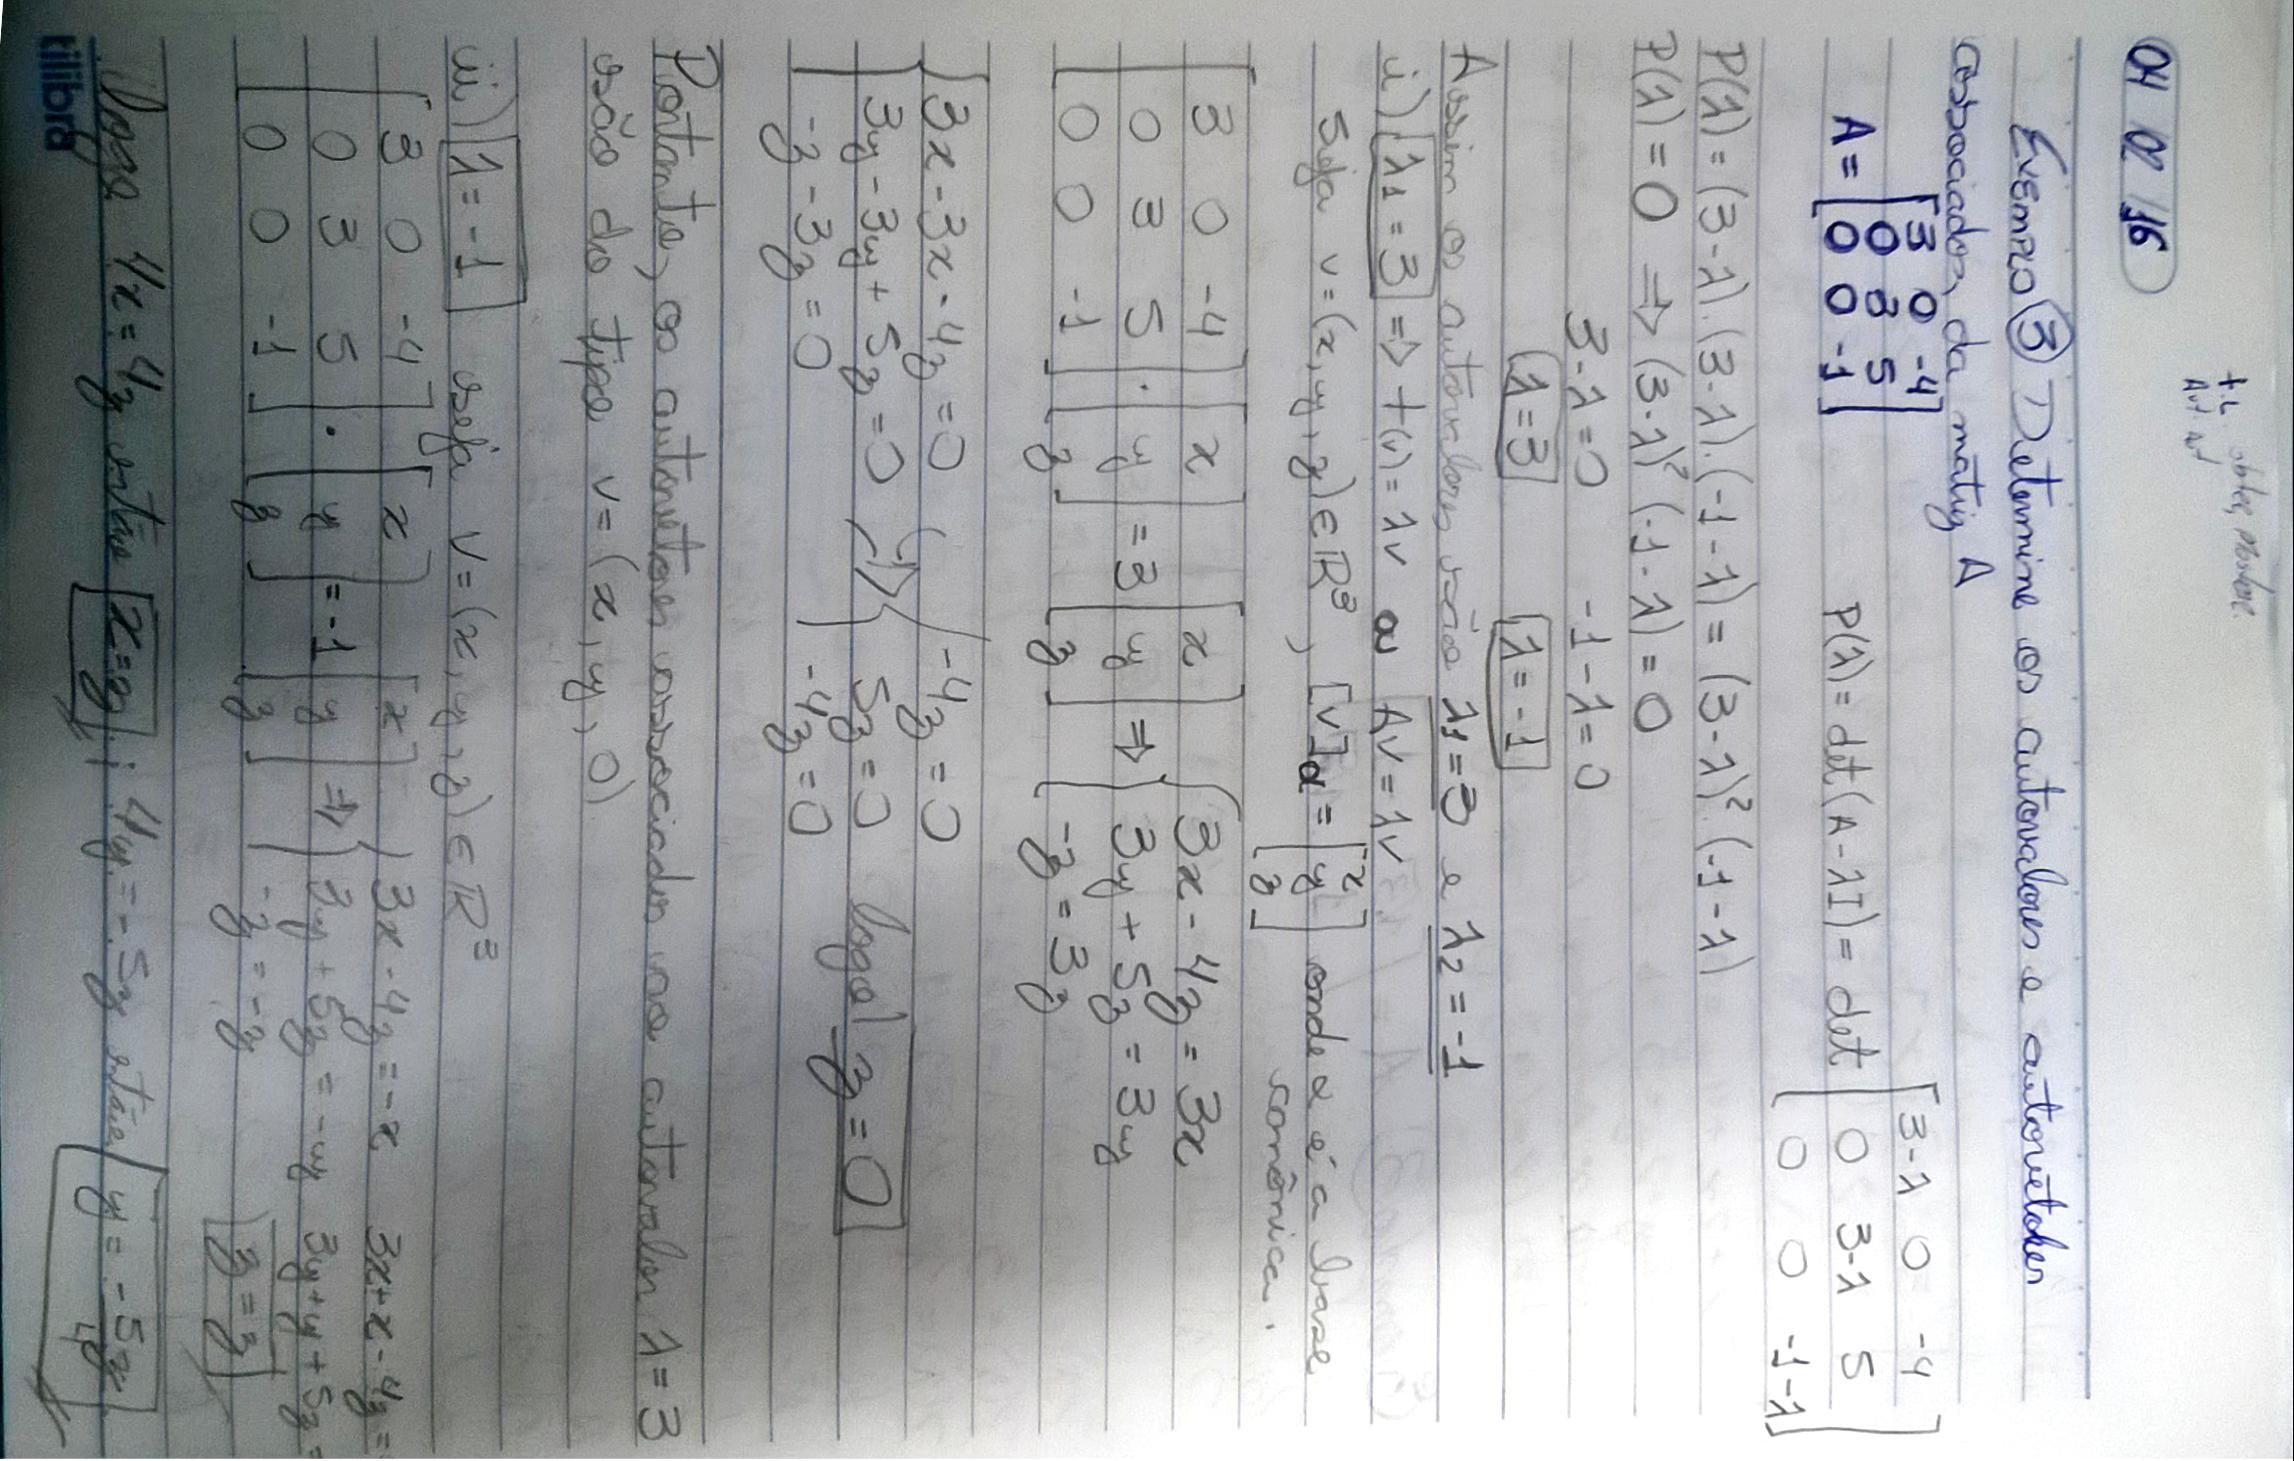 t.L obter, mostre.
Aut. aut
04 02 16
Exemplo ③ Determine os autovalores e autovetores
associados da matriz A
A = [3 0 -4; 0 3 5; 0 0 -1] P(λ) = det(A - λI) = det [3-λ 0 -4; 0 3-λ 5; 0 0 -1-λ]
P(λ) = (3-λ).(3-λ).(-1-λ) = (3-λ)².(-1-λ)
P(λ) = 0 => (3-λ)² (-1-λ) = 0
3-λ=0 -1-λ=0
λ=3 λ=-1
Assim os autovalores são λ1=3 e λ2=-1
i) λ1=3 => t(v)=λv ou Av=λv
Seja v=(x,y,z)∈R³, [v]α = [x; y; z] onde α é a base
canônica.
[3 0 -4; 0 3 5; 0 0 -1] · [x; y; z] = 3 [x; y; z] => { 3x-4z=3x; 3y+5z=3y; -z=3z
{ 3x-3x-4z=0; 3y-3y+5z=0; -z-3z=0 => { -4z=0; 5z=0; -4z=0 logo z=0
Portanto, os autovetores associados ao autovalor λ=3
são do tipo v=(x,y,0)
ii) λ=-1 seja v=(x,y,z)∈R³
[3 0 -4; 0 3 5; 0 0 -1] · [x; y; z] = -1 [x; y; z] => { 3x-4z=-x; 3y+5z=-y; -z=-z 3x+x-4z= 3y+y+5z= z=z
Logo 4x=4z então x=z ; 4y=-5z então y=-5z/4
tilibra